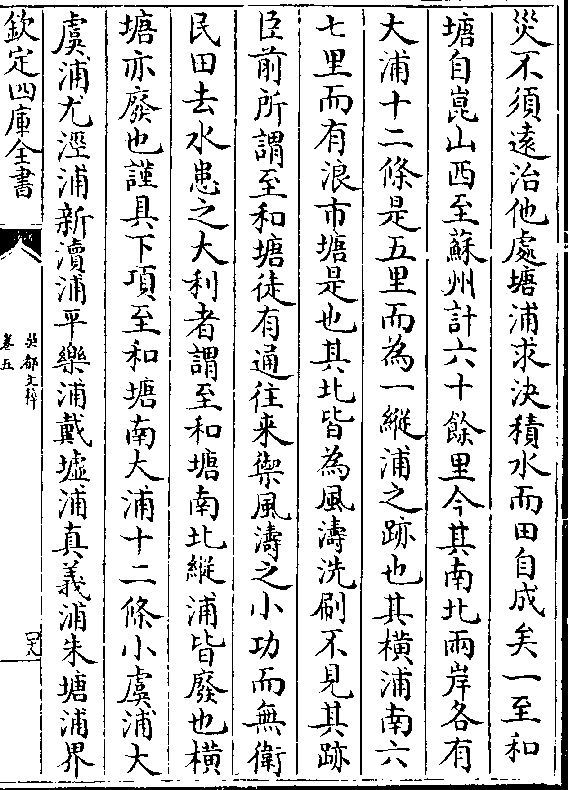 災不須遠治他處塘浦求決積水而田自成矣一至和
塘自崑山西至蘇州計六十餘里今其南北兩岸各有
大浦十二條是五里而為一縱浦之跡也其橫浦南六
七里而有浪市塘是也其北皆為風濤洗刷不見其跡
臣前所謂至和塘徒有通往来禦風濤之小功而無衛
民田去水患之大利者謂至和塘南北縱浦皆廢也橫
塘亦廢也謹具下項至和塘南大浦十二條小虞浦大
虞浦尤涇浦新瀆浦平樂浦戴墟浦真義浦朱塘浦界
欽定四庫全書
吳都文粹
卷五